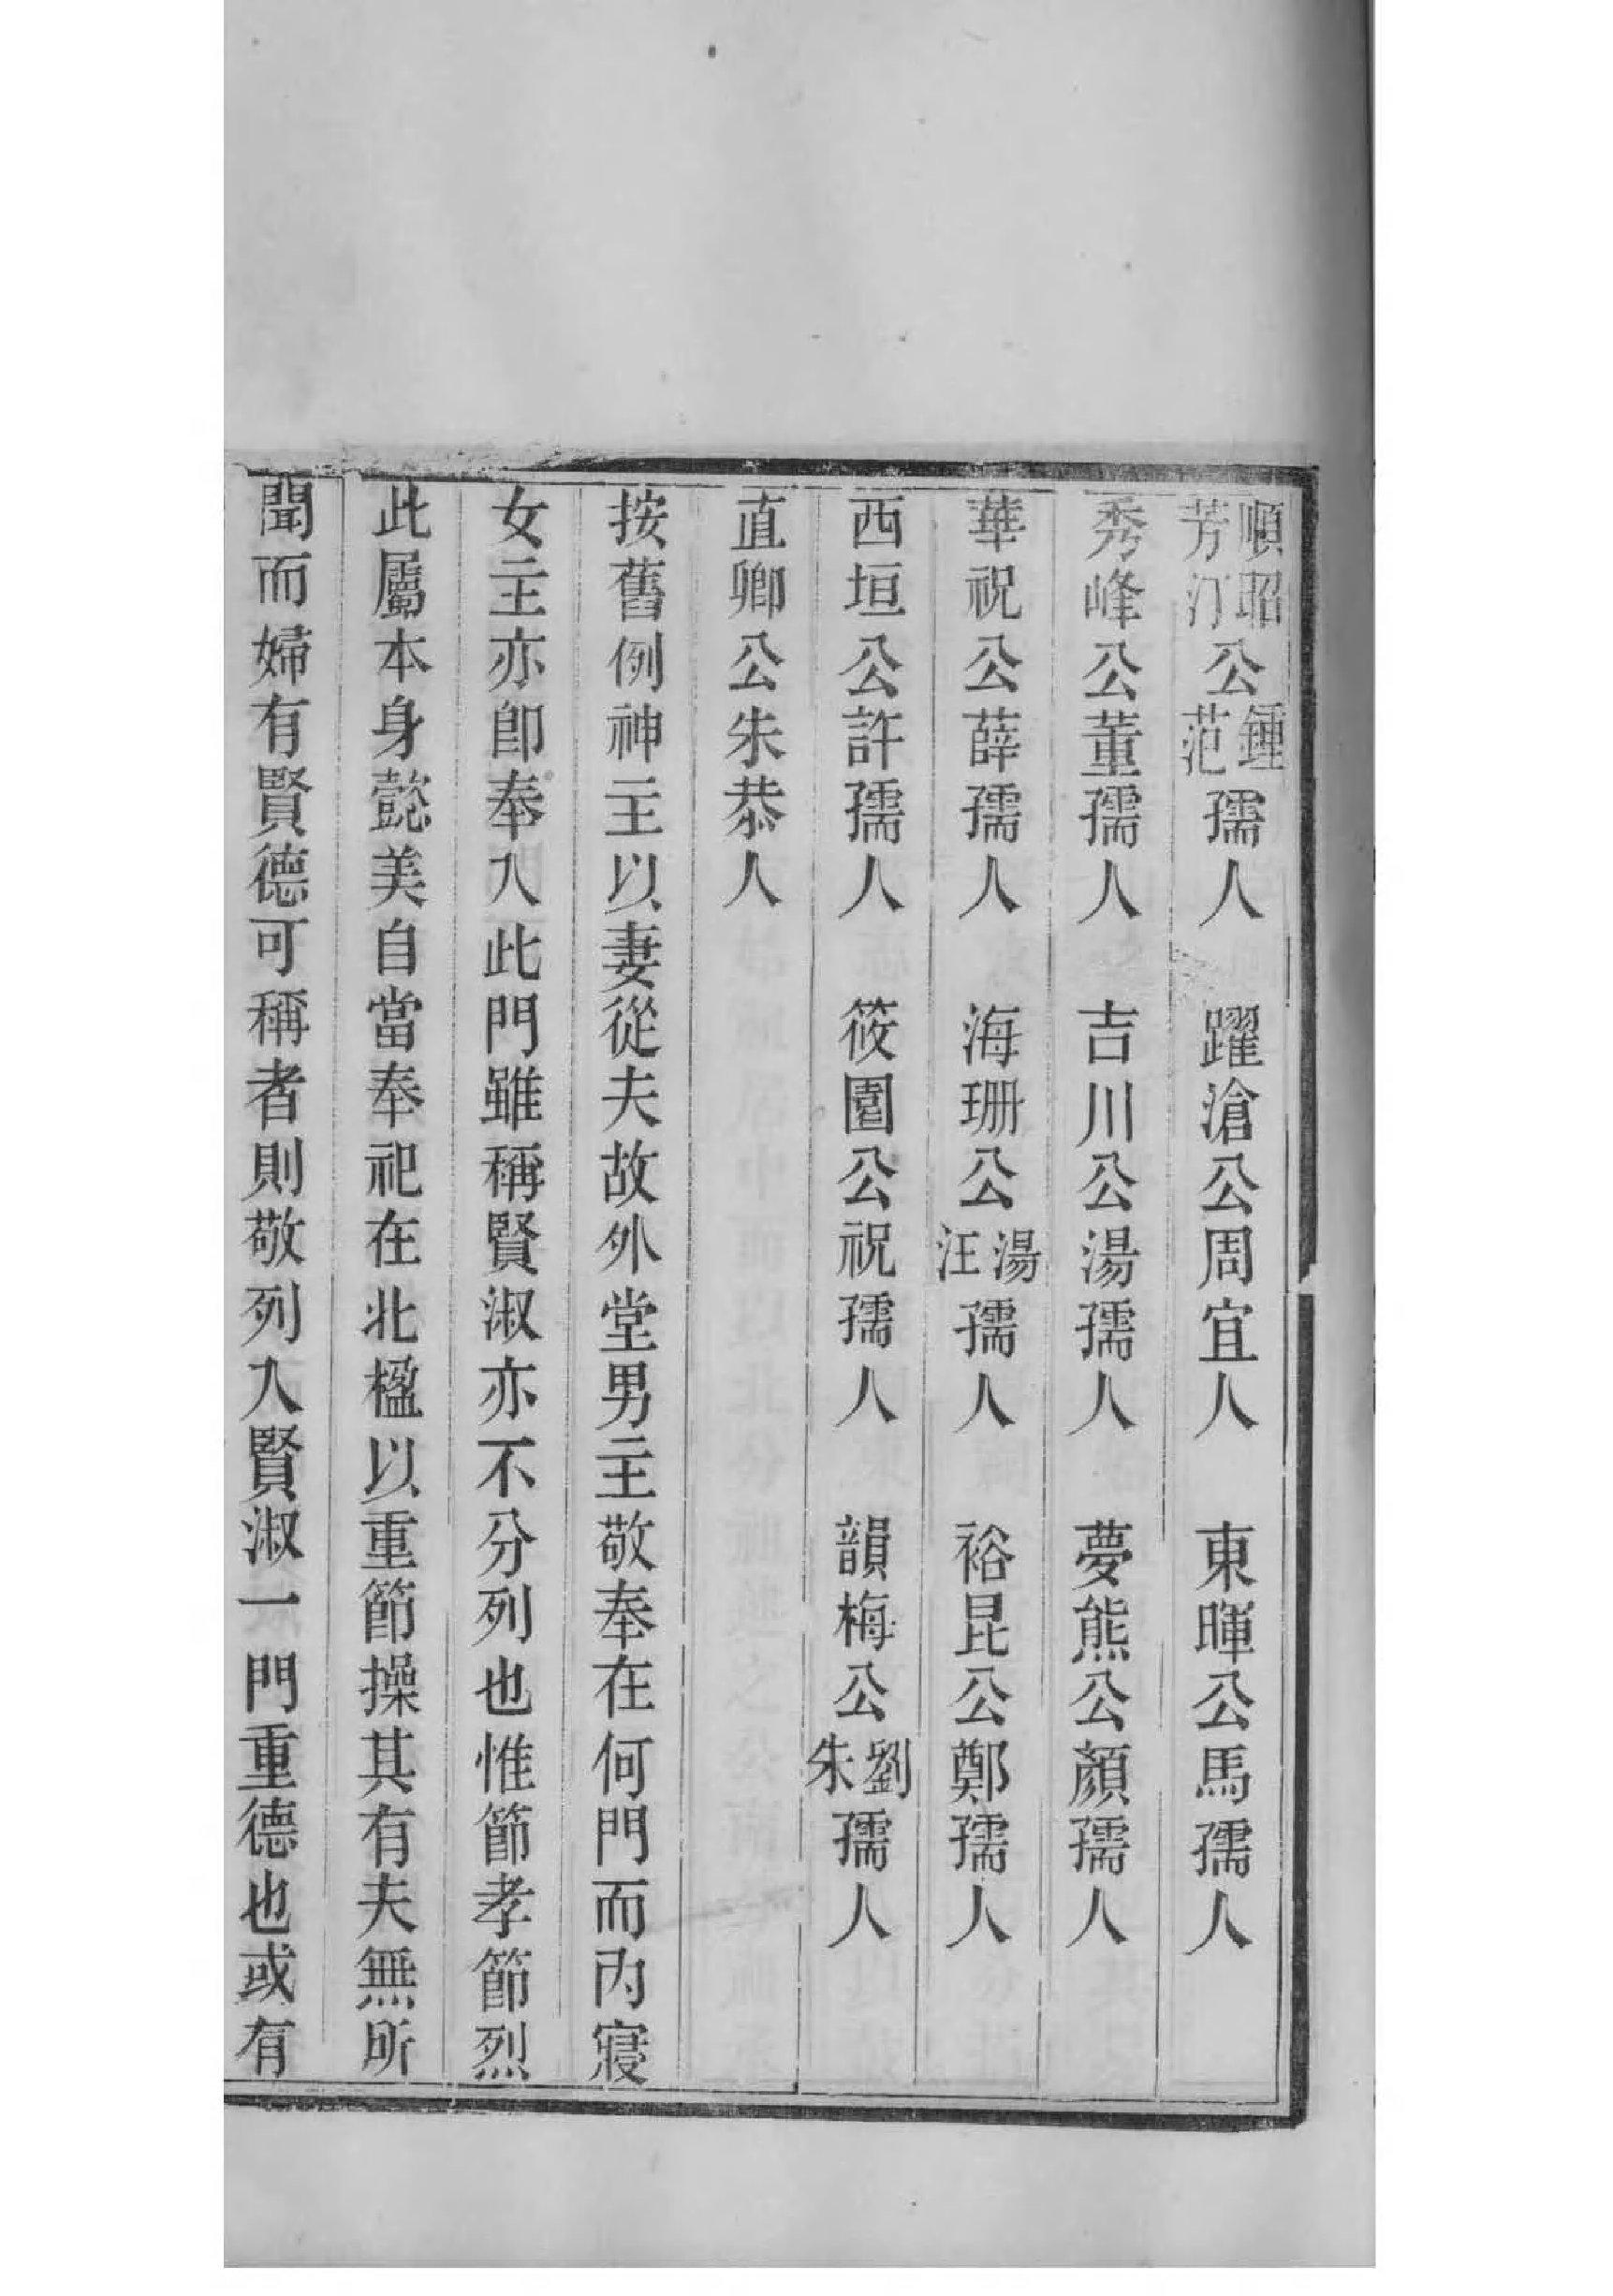 順昭芳汀公鍾范孺人　躍滄公周宜人　東暉公馬孺人
秀峰公董孺人　吉川公湯孺人　夢熊公顏孺人
華祝公薛孺人　海珊公湯汪孺人　裕昆公鄭孺人
西垣公許孺人　筱園公祝孺人　韻梅公劉朱孺人
直卿公朱恭人
按舊例神主以妻從夫故外堂男主敬奉在何門而內寢
女主亦卽奉入此門雖稱賢淑亦不分列也惟節孝節烈
此屬本身懿美自當奉祀在北楹以重節操其有夫無所
聞而婦有賢德可稱者則敬列入賢淑一門重德也或有